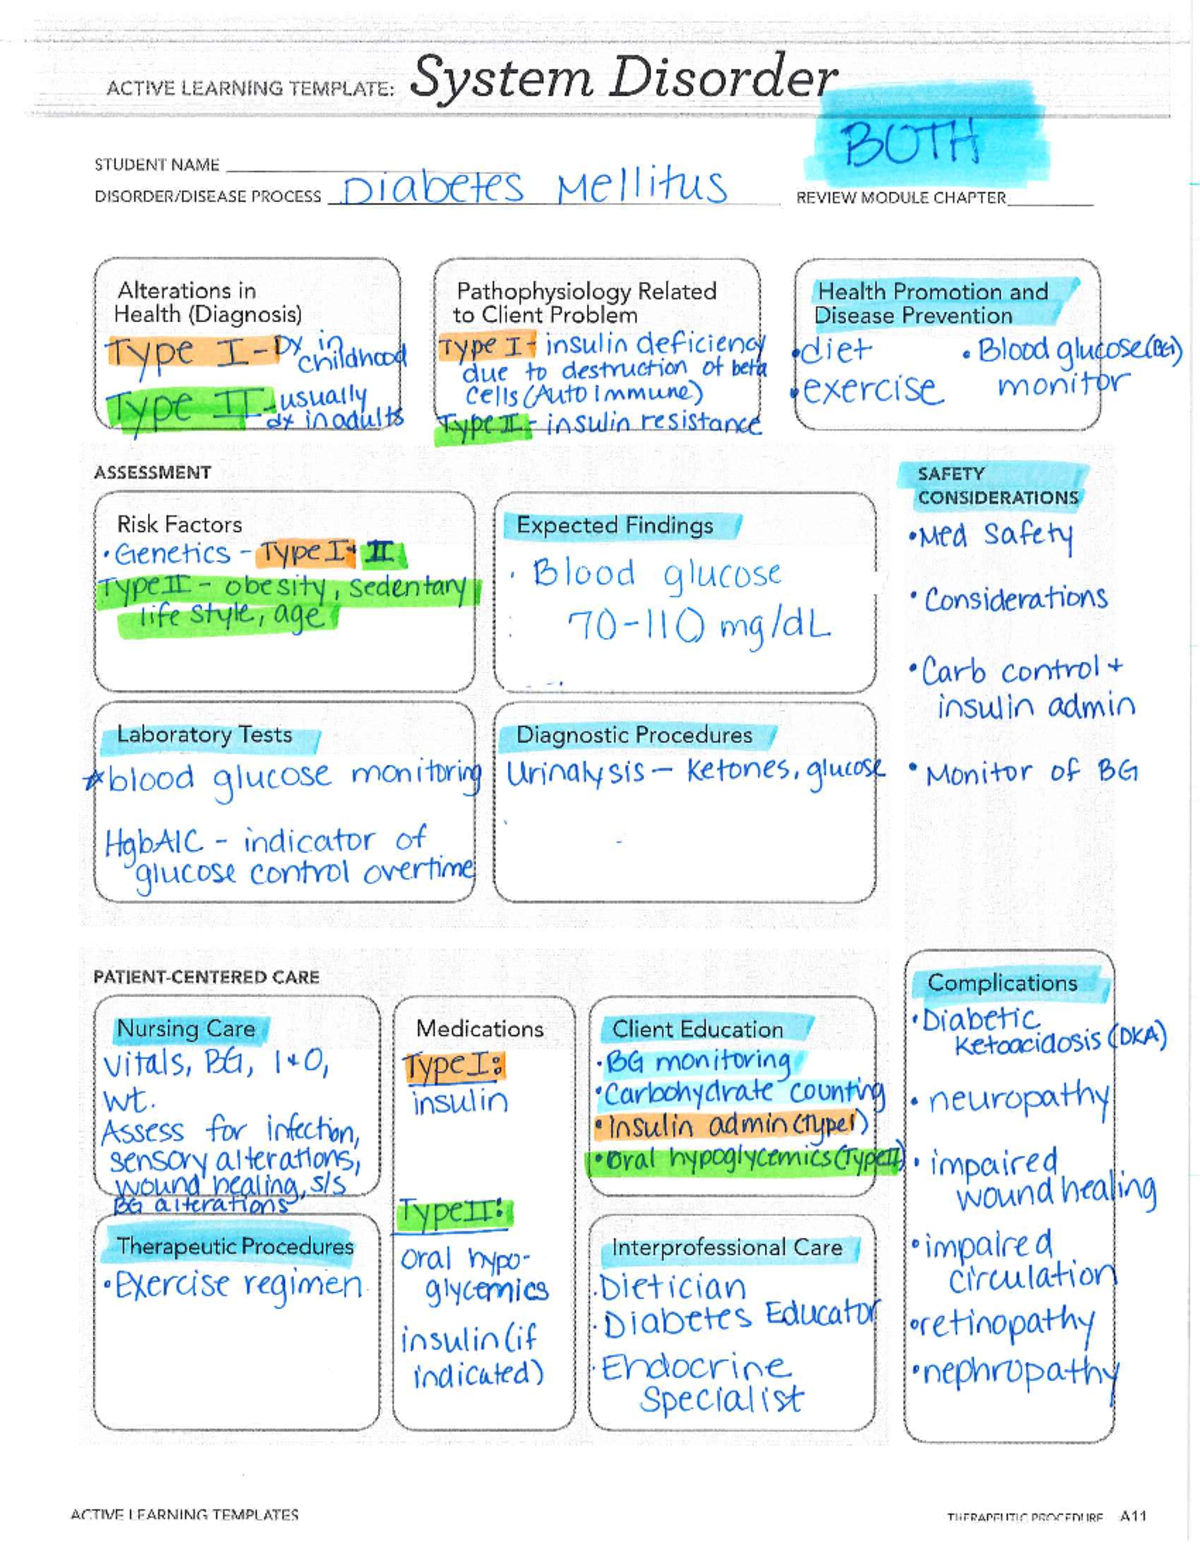 ACTIVE LEARNING TEMPLATE: System Disorder
BOTH
STUDENT NAME
DISORDER/DISEASE PROCESS Diabetes Mellitus
REVIEW MODULE CHAPTER
Alterations in
Health (Diagnosis)
Type I - Dx in
childhood
Type II - usually
dx in adults
Pathophysiology Related
to Client Problem
Type I - insulin deficiency
due to destruction of beta
cells (Auto Immune)
Type II - insulin resistance
Health Promotion and
Disease Prevention
• diet
• exercise
• Blood glucose (BG)
monitor
ASSESSMENT
Risk Factors
• Genetics - Type I + II
Type II - obesity, sedentary
life style, age
Expected Findings
• Blood glucose
70-110 mg/dL
SAFETY
CONSIDERATIONS
• Med Safety
• Considerations
• Carb control +
insulin admin
• Monitor of BG
Laboratory Tests
* blood glucose monitoring
HgbA1C - indicator of
glucose control overtime
Diagnostic Procedures
Urinalysis - Ketones, glucose
PATIENT-CENTERED CARE
Nursing Care
Vitals, BG, I+O,
wt.
Assess for infection,
sensory alterations,
wound healing, s/s
BG alterations
Therapeutic Procedures
• Exercise regimen
Medications
Type I:
insulin
Type II:
oral hypo-
glycemics
insulin (if
indicated)
Client Education
• BG monitoring
• Carbohydrate counting
• Insulin admin (Type I)
• oral hypoglycemics (Type II)
Interprofessional Care
• Dietician
• Diabetes Educator
• Endocrine
Specialist
Complications
• Diabetic
Ketoacidosis (DKA)
• neuropathy
• impaired
wound healing
• impaired
circulation
• retinopathy
• nephropathy
ACTIVE LEARNING TEMPLATES
THERAPEUTIC PROCEDURE A11